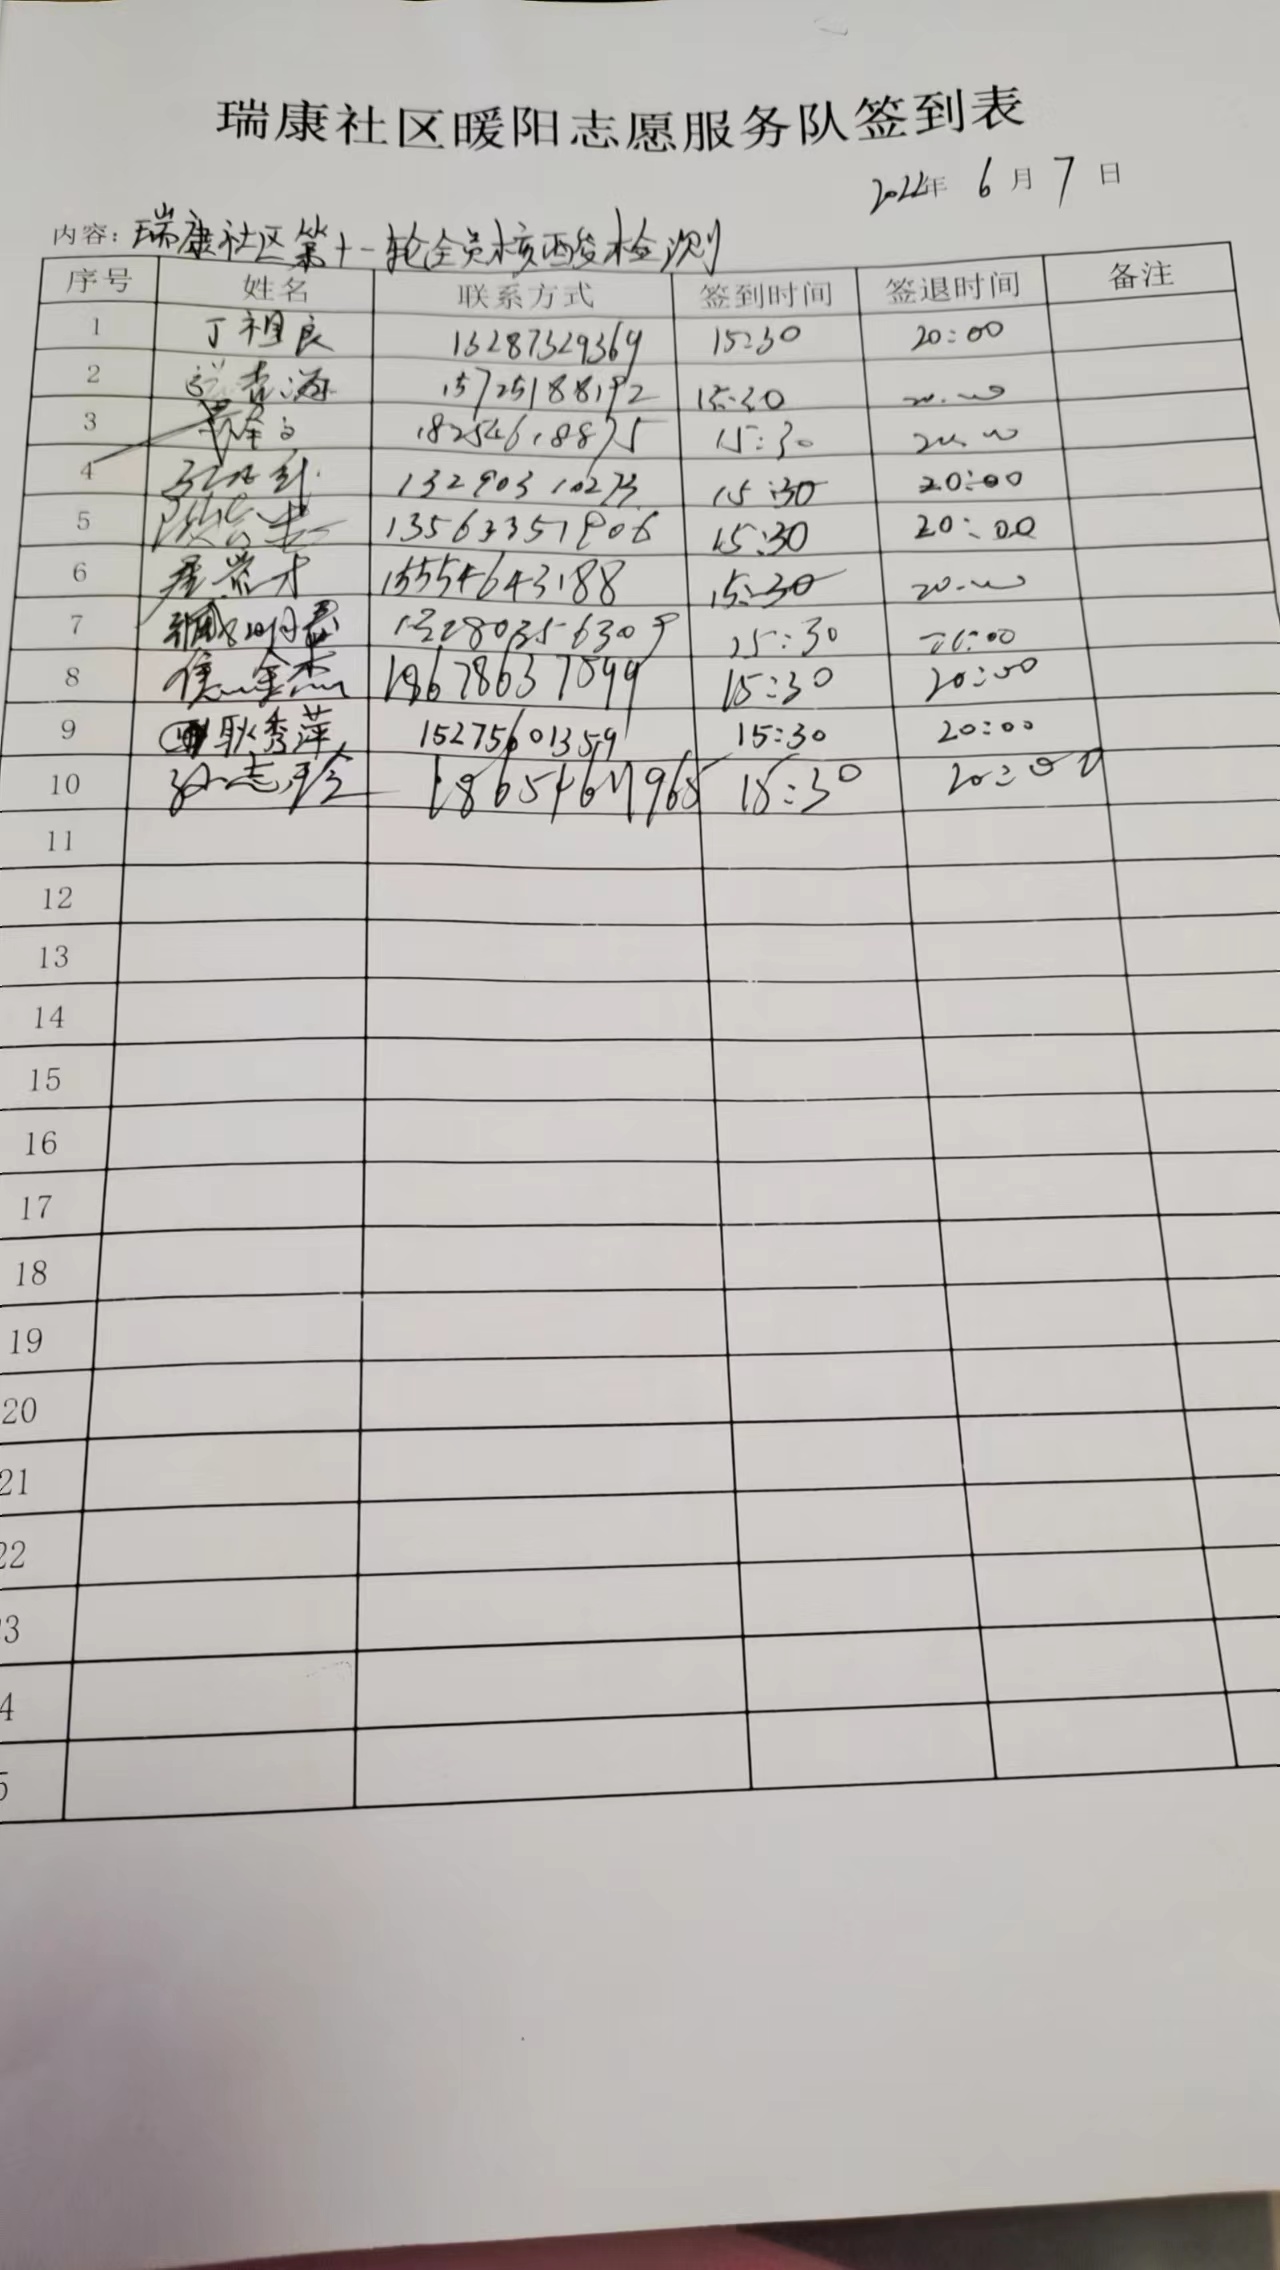 瑞康社区暖阳志愿服务队签到表
2022年 6月7日
内容：瑞康社区第十一轮全员核酸检测
序号 姓名 联系方式 签到时间 签退时间 备注
1 丁祖良 13287329369 15:30 20:00
2 15725188192 15:30 20:00
3 18254618875 15:30 20:00
4 13290310273 15:30 20:00
5 13563351906 15:30 20:00
6 15554643188 15:30 20:00
7 15:30 20:00
8 18678637099 15:30 20:00
9 耿秀萍 15275601359 15:30 20:00
10 孙志珍 15:30 20:00
11
12
13
14
15
16
17
18
19
20
21
22
3
4
5